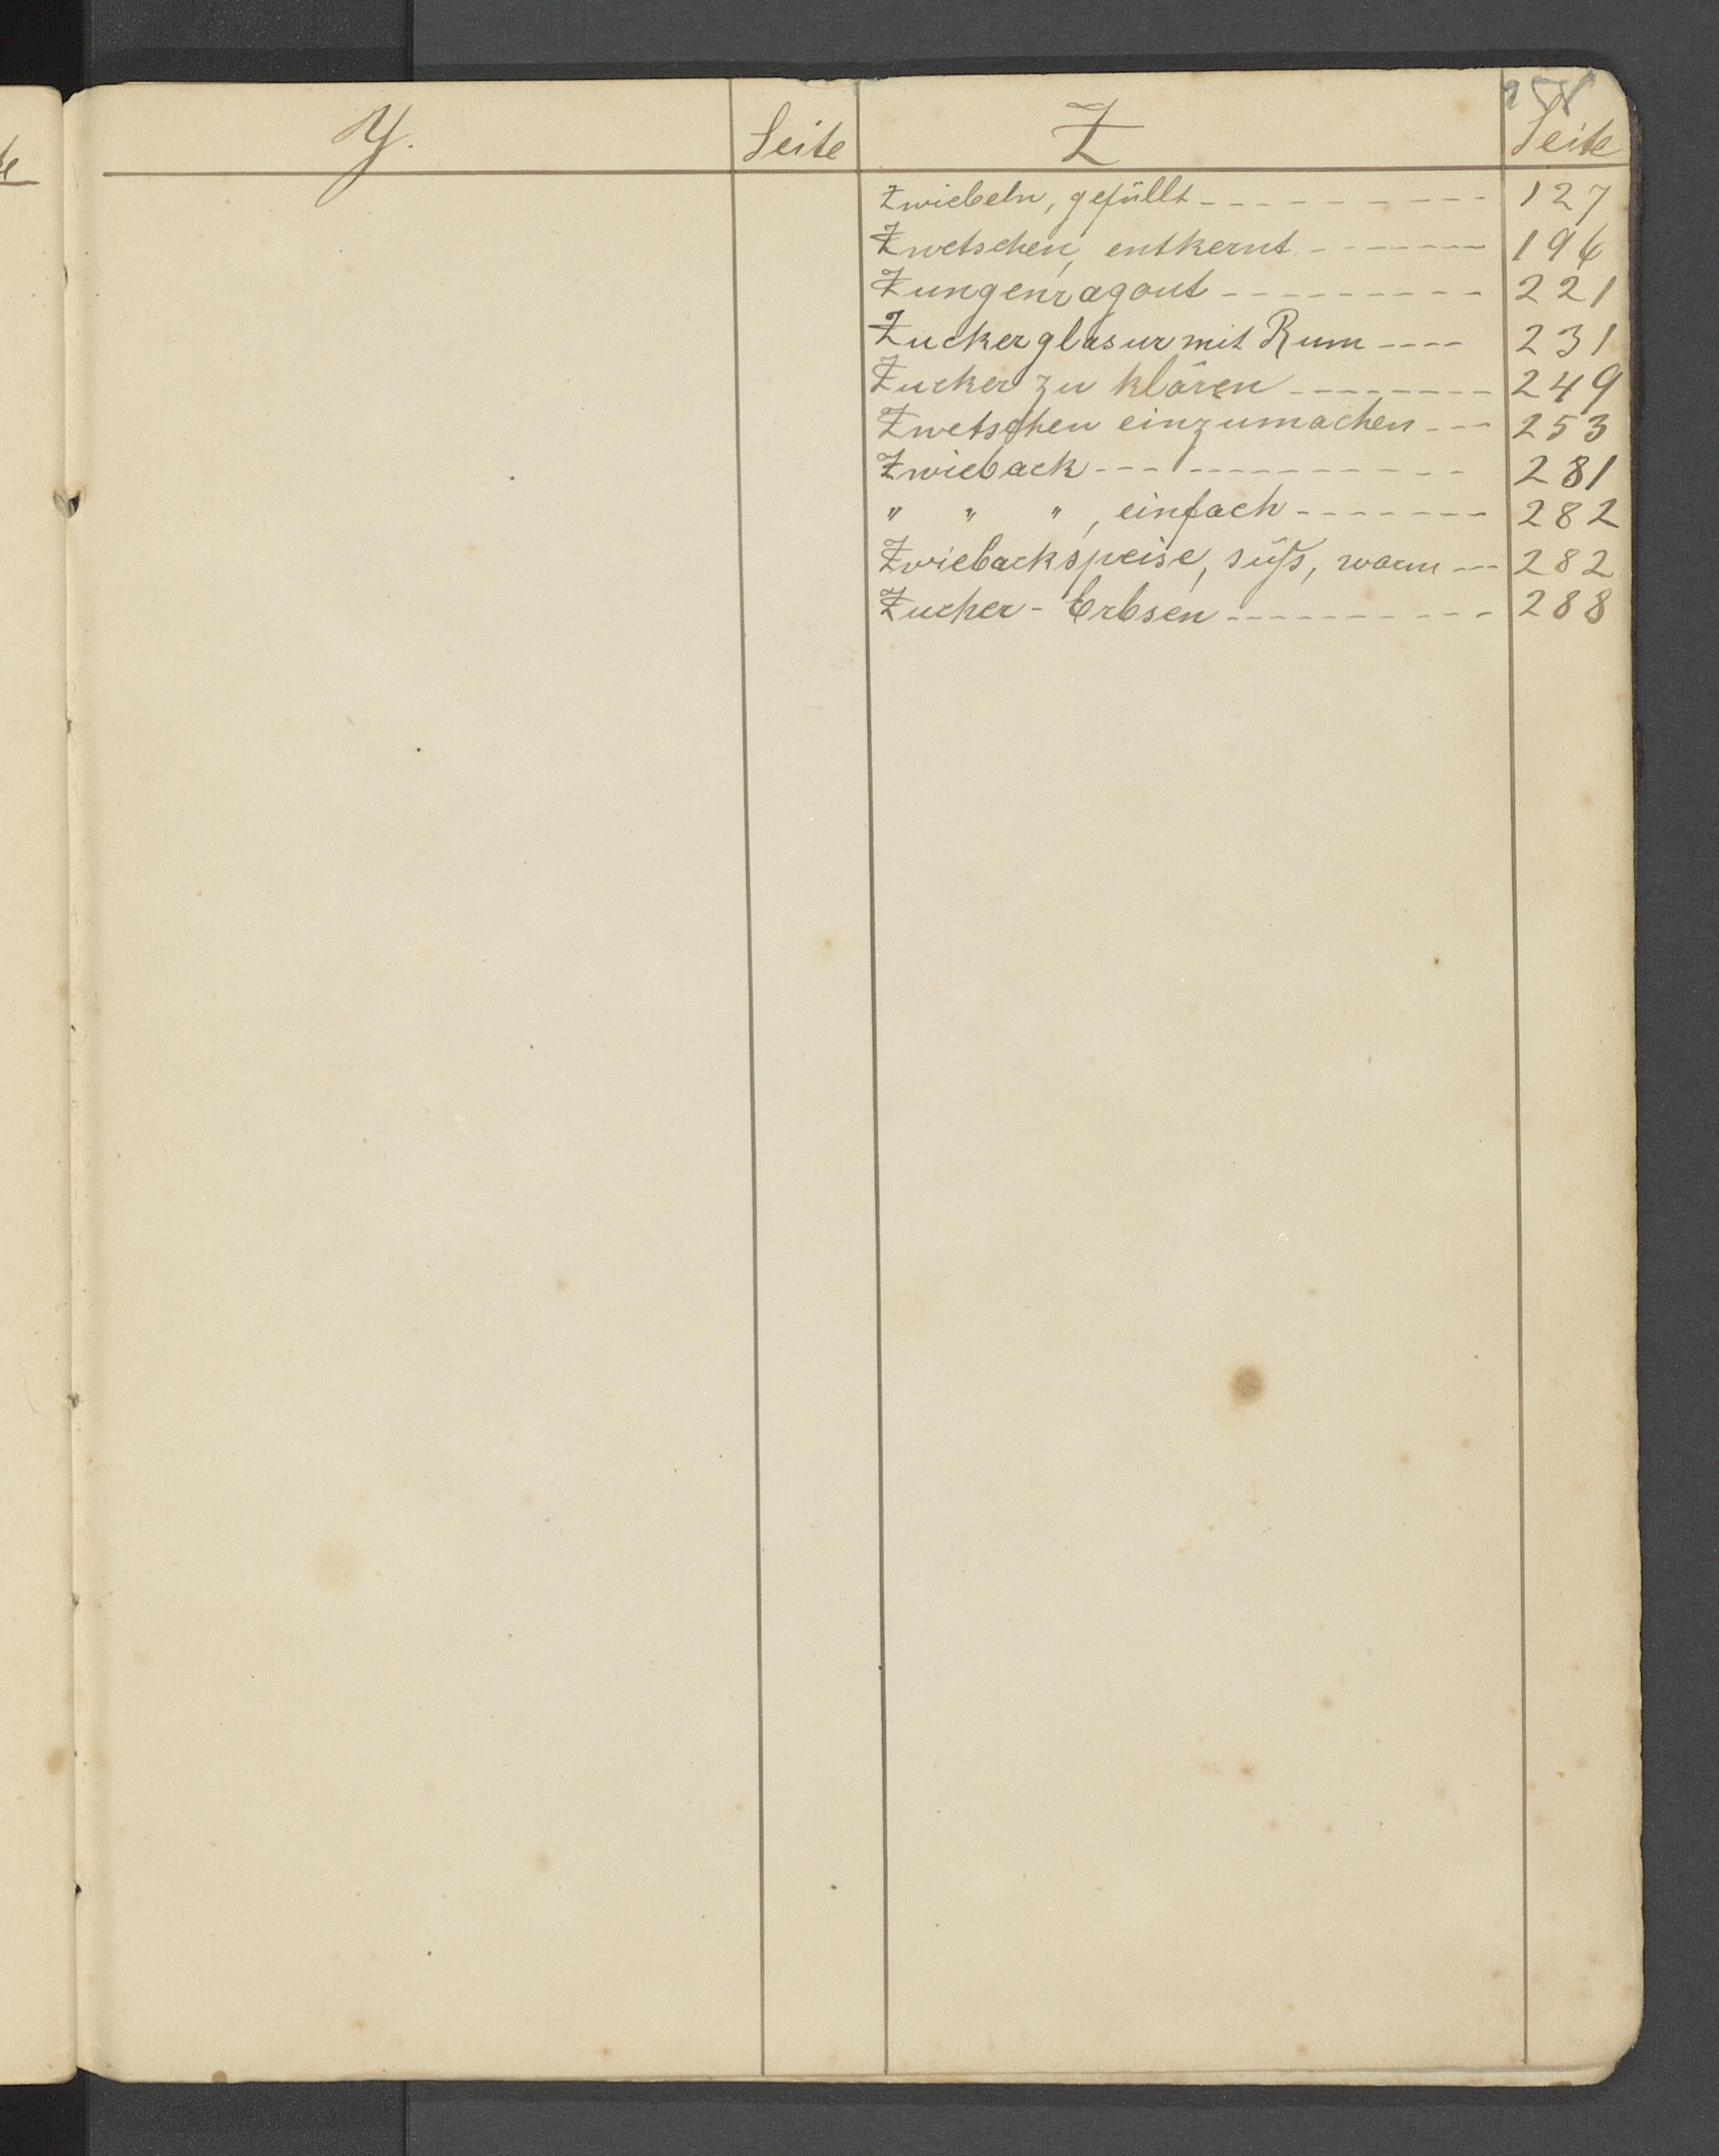 Y. Seite Z Seite
Zwiebeln, gefüllt - - - - - - - - - - 127
Zwetschen, entkernt - - - - - - - 196
Zungenragout - - - - - - - - - 221
Zuckerglasur mit Rum - - - - 231
Zucker zu klären - - - - - - - - 249
Zwetschen einzumachen - - - 253
Zwieback - - - - - - - - - - - - 281
" " " , einfach - - - - - - - 282
Zwiebackspeise, süß, warm - - - 282
Zucker-Erbsen - - - - - - - - - - 288